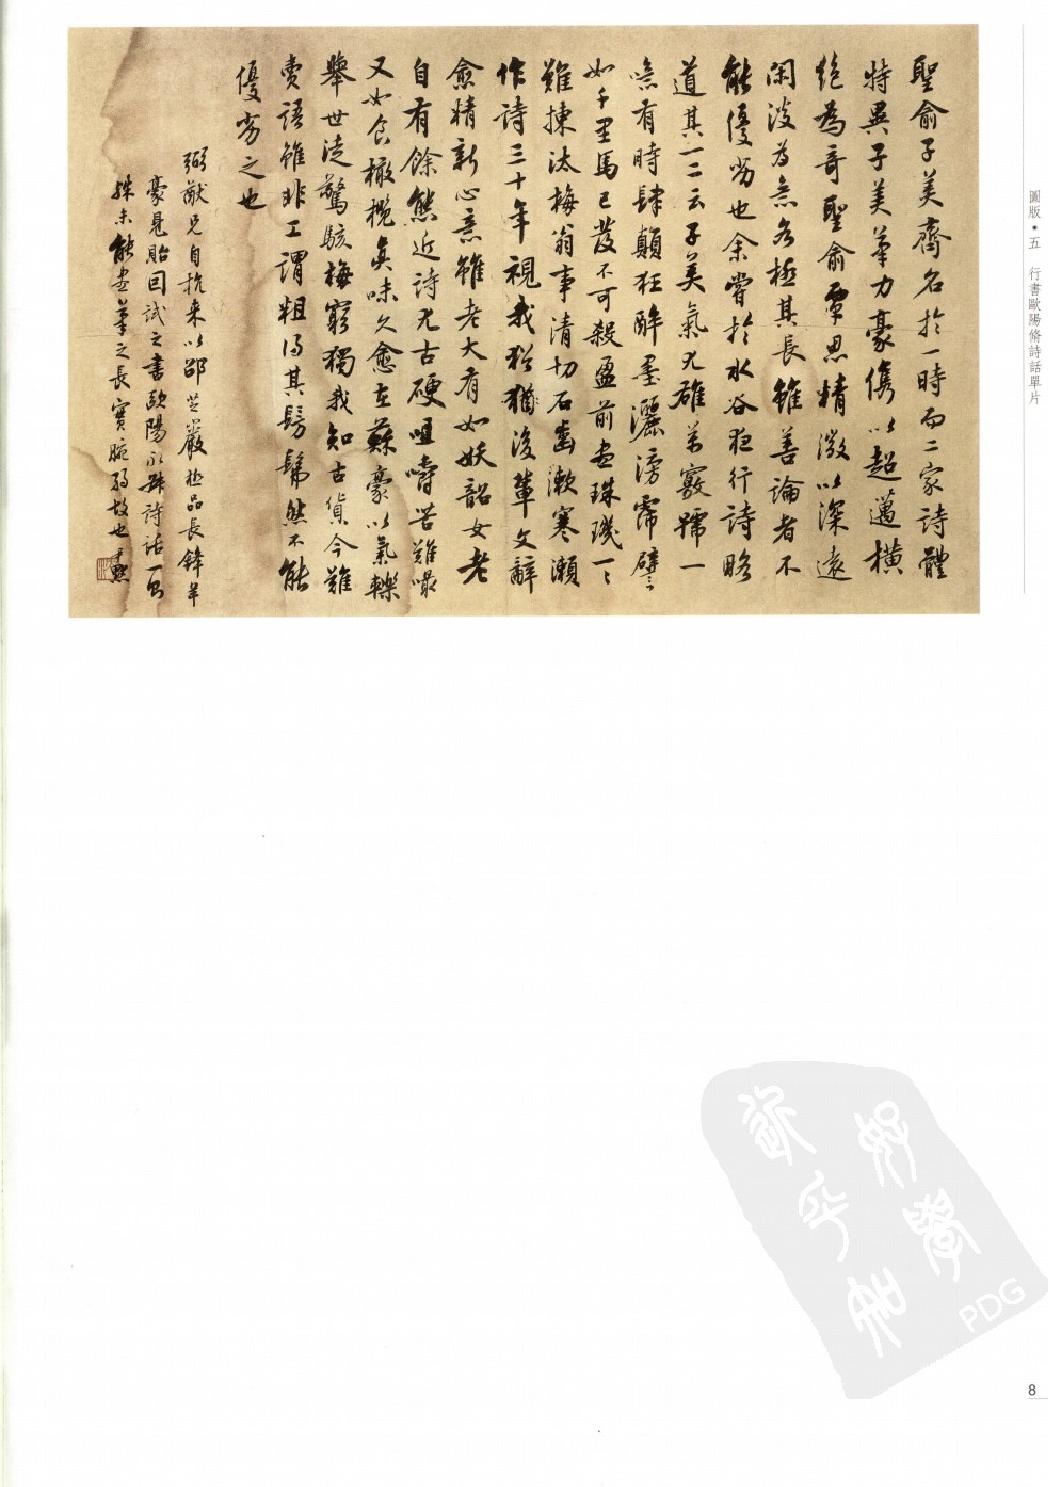 聖俞子美齊名於一時而二家詩體
特異子美筆力豪儁以超邁橫
絕為奇聖俞覃思精微以深遠
閑淡為意各極其長雖善論者不
能優劣也余嘗於水谷夜行詩略
道其一二云子美氣尤雄萬竅號一
噫有時肆顛狂醉墨灑滂霈譬
如千里馬已發不可殺盈前盡珠璣一一
難揀汰梅翁事清切石齒漱寒瀨
作詩三十年視我猶後輩文辭
愈精新心意雖老大有如妖韶女老
自有餘態近詩尤古硬咀嚼苦難嘬
又如食橄欖真味久愈在蘇豪以氣轢
舉世徒驚駭梅窮獨我知古貨今難
賣語雖非工謂粗得其髣髴然不能
優劣之也
弼猷兄自杭来以邵芝巖極品長鋒羊
豪見貽因試之書歐陽永叔詩話一則
殊未能盡筆之長實腕弱故也尹默
圖版・五 行書歐陽脩詩話單片
8
PDG